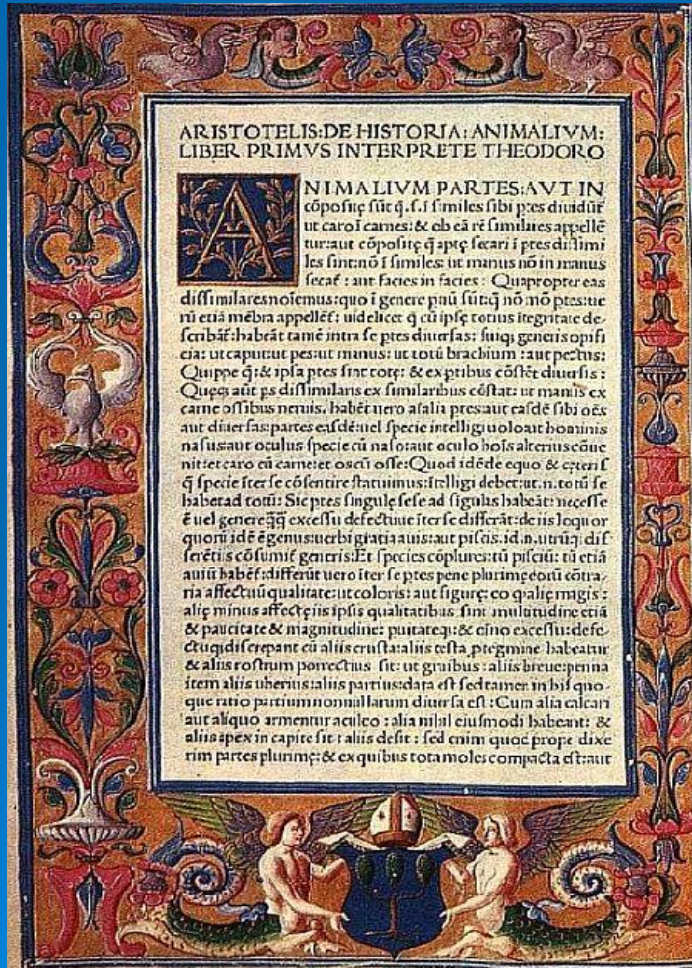 ARISTOTELIS:DE HISTORIA: ANIMALIVM:
LIBER PRIMVS INTERPRETE THEODORO
ANIMALIVM PARTES:AVT IN
cōpositę sūt q̄.s.ī similes sibi ptes dividūt
ut caro ī carnes:& ob eā rē similares appellē
tur:aut cōpositę q̄ aptę secari ī ptes dissimi
les sint:nō ī similes: ut manus nō in manus
secat: aut facies in facies: Quapropter eas
dissimilares noīemus:quo ī genere pnū sūt:q̄ nō mō ptes:ue
rū etiā mēbra appellēt: uidelicet q̄ cū ipsę totius itegritate de
scribāt:habēāt tamē intra se ptes diuersas: suiq; generis opifi
cia: ut caput:ut pes:ut manus: ut totū brachium: aut pectus:
Quippe q̄:& ipsa ptes sint totę: & ex ptibus cōstēt diuersis:
aut ps dissimilaris ex similaribus cōstat: ut manus ex
carne ossibus neruis. habēt uero aīalia ptes:aut easdē sibi oēs
aut diuersas:partes easdē:uel specie intelligi uolo:aut hominis
nasus:aut oculus specie cū naso:aut oculo hoīs alterius cōue
nit:et caro cū carne:et oscū osse: Quod idē de equo & ceteris
q̄ specie iter se cōsentire statuimus:ītelligi debet:ut.n.totū se
habet ad totū: Sic ptes singulę sese ad sīgulas habēāt: necesse
ē uel genere excessu defectiue iter se differāt:de iis loquor
quorū idē ē genus:uerbi gratia auis:aut piscis.id.n.utrūq; dif
ferētiis cōsumit generis:Et species cōplures:tū pisciū: tū etiā
auiū habēt:differūt uero iter se ptes pene plurimę eorū cōtra
ria affectuū qualitate:ut coloris: aut figurę: eo q̄ alię magis:
alię minus affectę iis ipsis qualitatibus sint multitudine etiā
& paucitate & magnitudine: & oīno excessu:defe
ctuq; discrepant cū aliis crusta:aliis testa ptegmine habeatur
& aliis rostrum porrectius sit: ut gruibus: aliis breue:penna
item aliis uberius:aliis partius:data est sed tamen in his quo
que ratio partium nonnullarum diuersa est: Cum alia calcari
aut aliquo armentur aculeo: alia nihil eiusmodi habeant: &
aliis apex in capite sit: aliis desit: sed enim quod prope dixe
rim partes plurimę:& ex quibus tota moles compacta est:aut